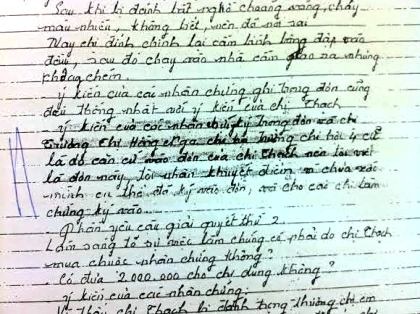 Sau khi bị đánh bất nghe choáng váng, chảy
máu nhiều, không biết, nên đã nói sai
Nay chị đính chính lại cầm bình bông đập vào
đầu, sau đó chạy vào nhà cầm dao ra nhưng
không chém.
Ý kiến của các nhân chứng ghi trong đơn cũng
đều thống nhất với ý kiến của chị Thạch
Ý kiến của các nhân chứng ký trong đơn và chị
Trương Thị Hồng chị
là do căn cứ vào đơn của chị Thạch nên tôi viết
lá đơn này, tôi nhận khuyết điểm vì chưa xác
minh cụ thể đã ký vào đơn, và cho các chị làm
chứng ký vào.
Phần yêu cầu giải quyết thứ 2
Làm sáng tỏ sự việc làm chứng có phải do chị Thạch
mua chuộc nhân chứng không?
Có đưa 2.000.000 cho chị dung không?
Ý kiến của các nhân chứng:
thấy chị Thạch bị đánh trọng thương chị em